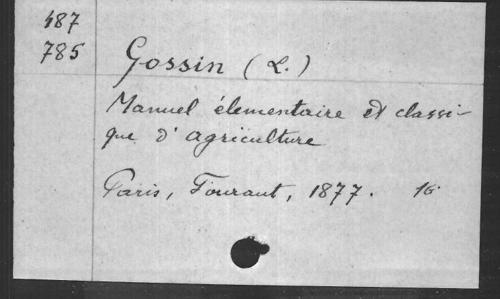 487
785
Gossin (L.)
Manuel élementaire et classi-
que d'agriculture
Paris, Fouraut, 1877. 16